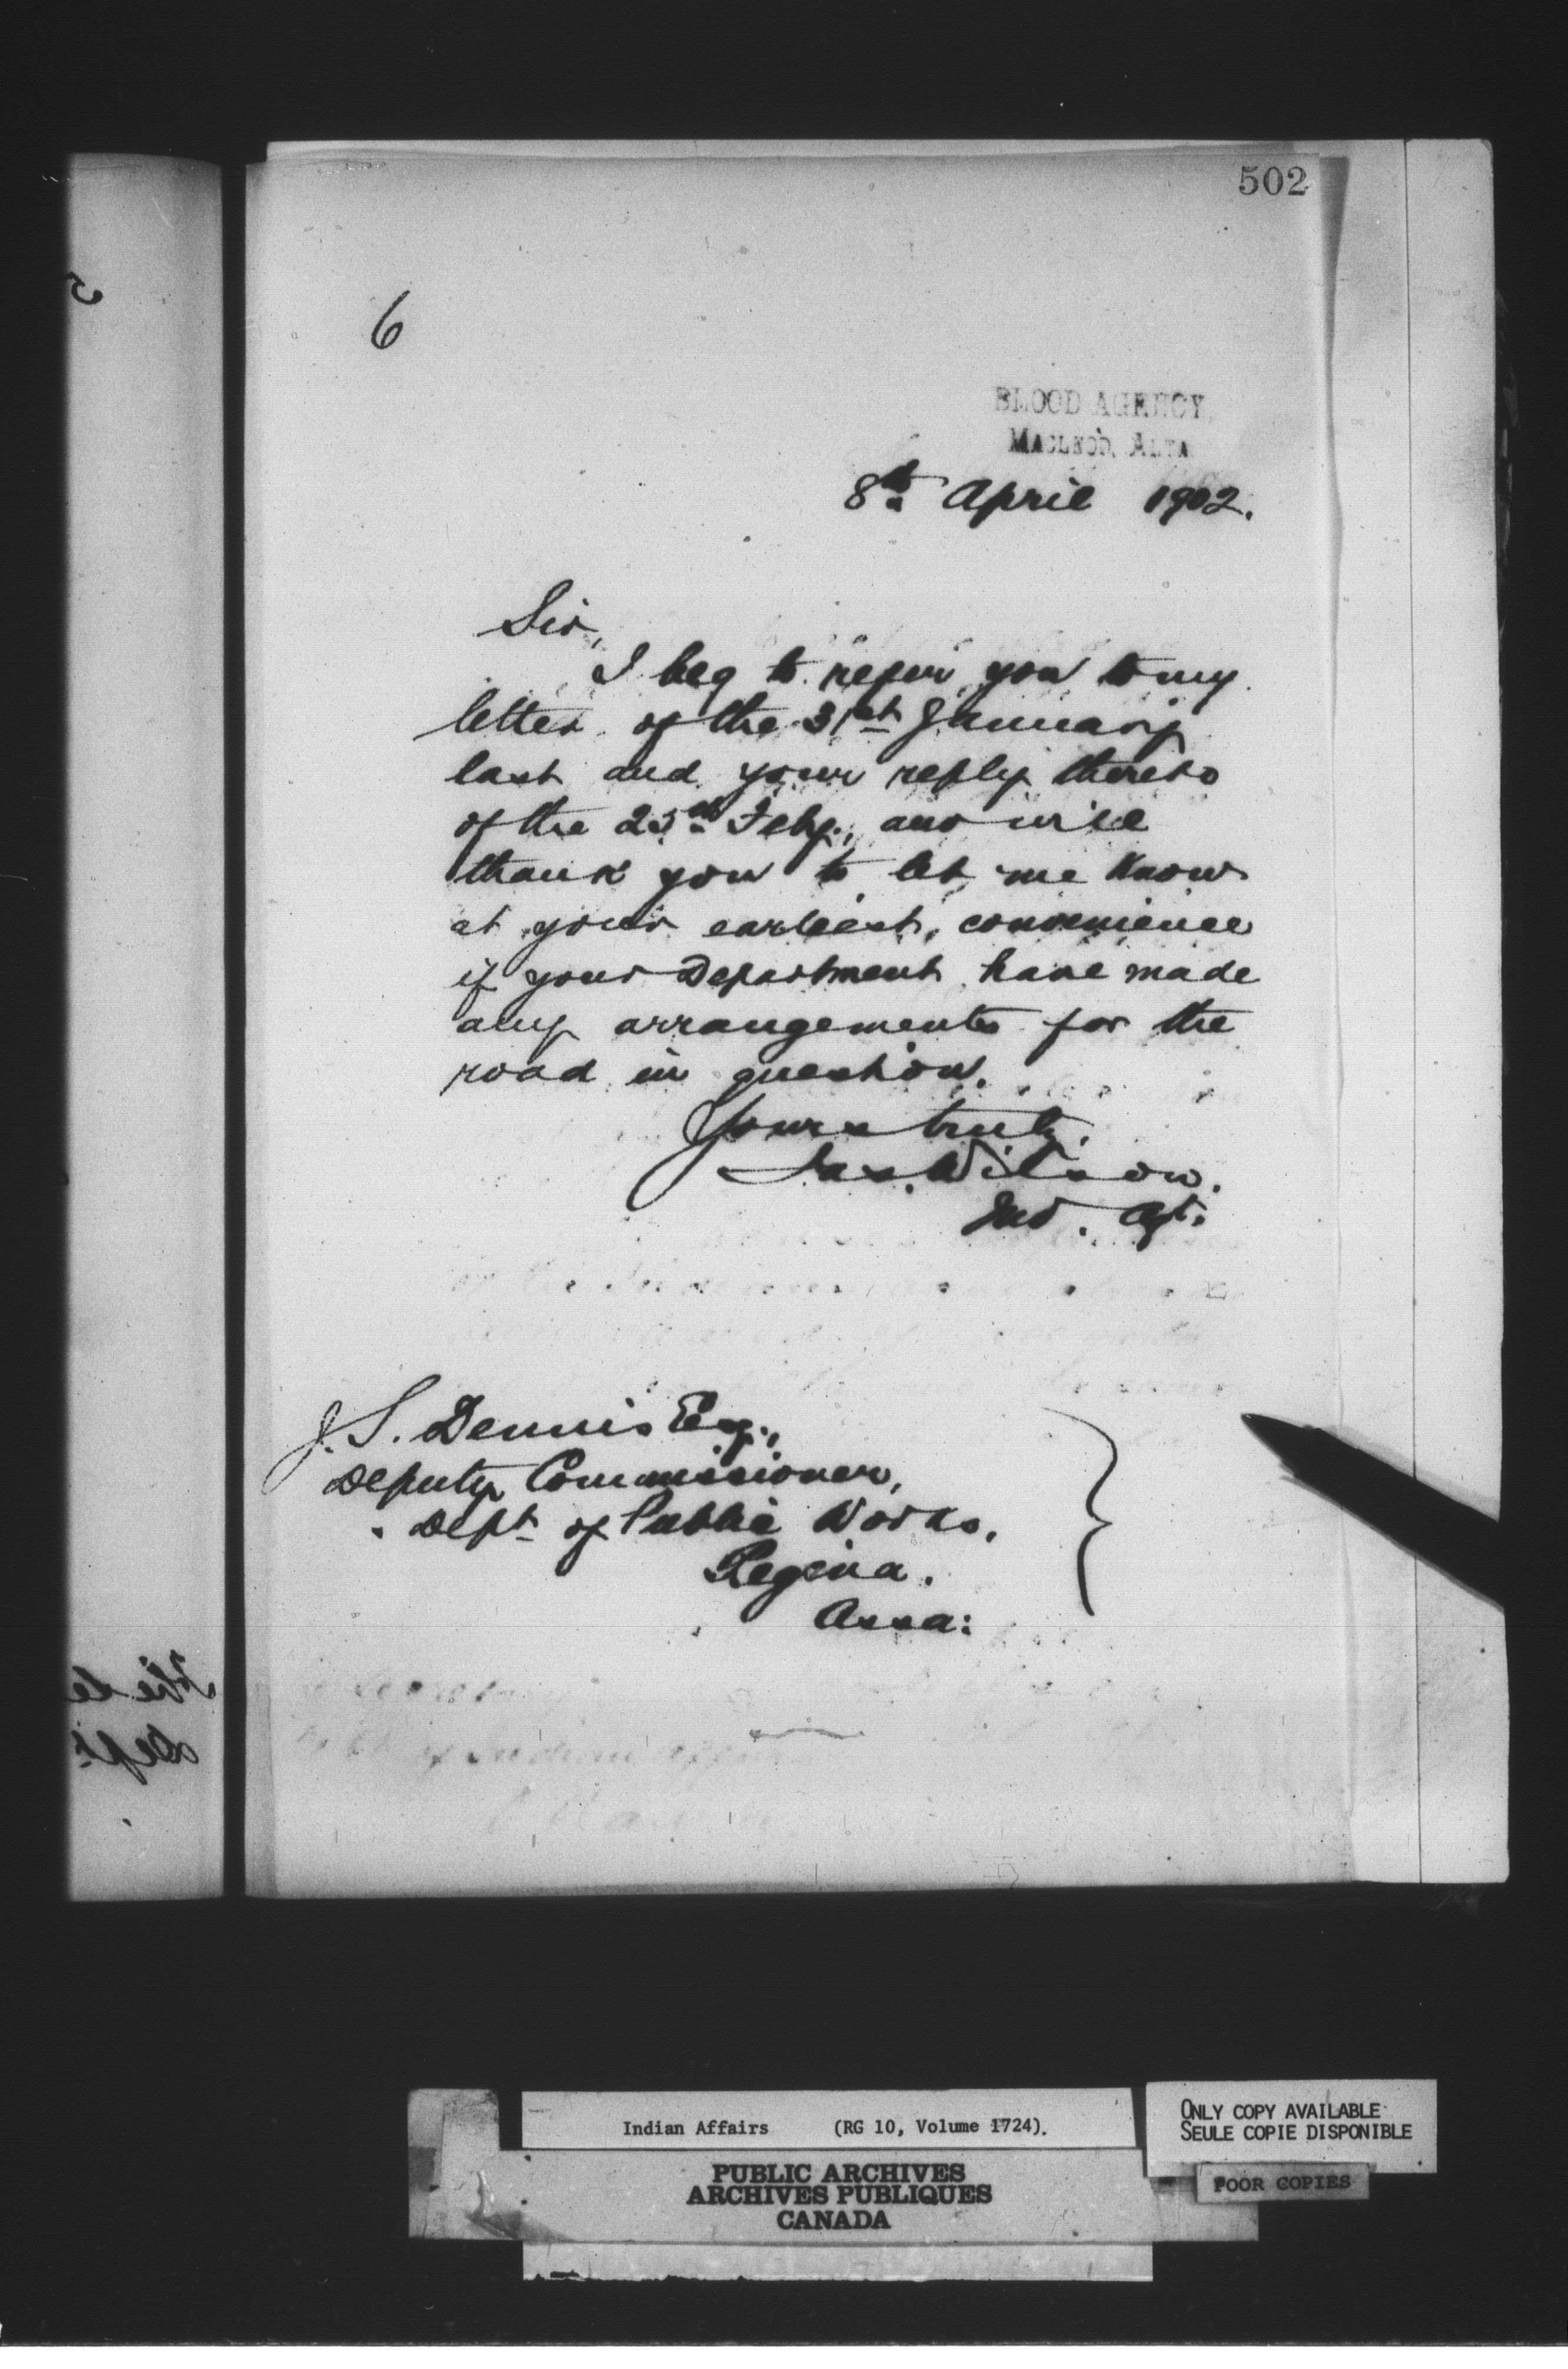 502
6
BLOOD AGENCY
MACLEOD, ALTA
8th April 1902.
Sir,
I beg to refer you to my
letter of the 31st January
last and your reply thereto
of the 25th Feby., and will
thank you to let me know
at your earliest convenience
if your Department have made
any arrangements for the
road in question.
Yours truly,
Jas. Wilson.
Ind. Agt.
J. S. Dennis Esq.,
Deputy Commissioner,
Dept of Public Works,
Regina.
Assa:
Dept
Indian Affairs (RG 10, Volume 1724).
PUBLIC ARCHIVES
ARCHIVES PUBLIQUES
CANADA
ONLY COPY AVAILABLE
SEULE COPIE DISPONIBLE
POOR COPIES